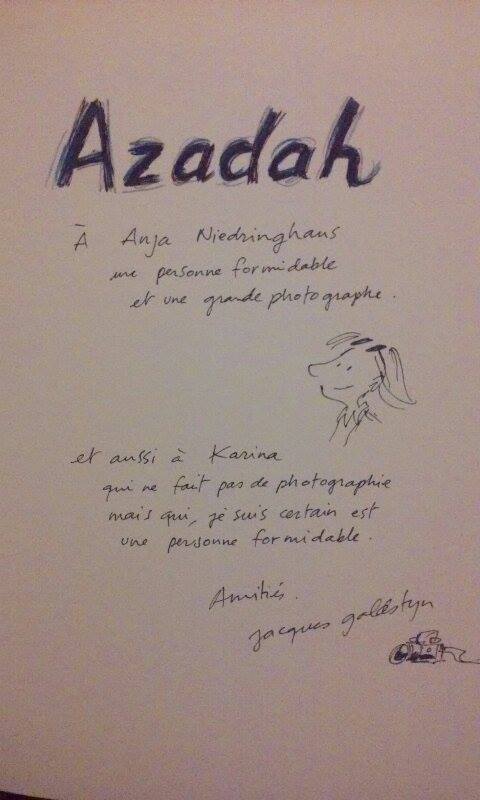 Azadah
À Anja Niedringhaus
une personne formidable
et une grande photographe.
et aussi à Karina
qui ne fait pas de photographie
mais qui, je suis certain est
une personne formidable.
Amitiés.
jacques goldstyn